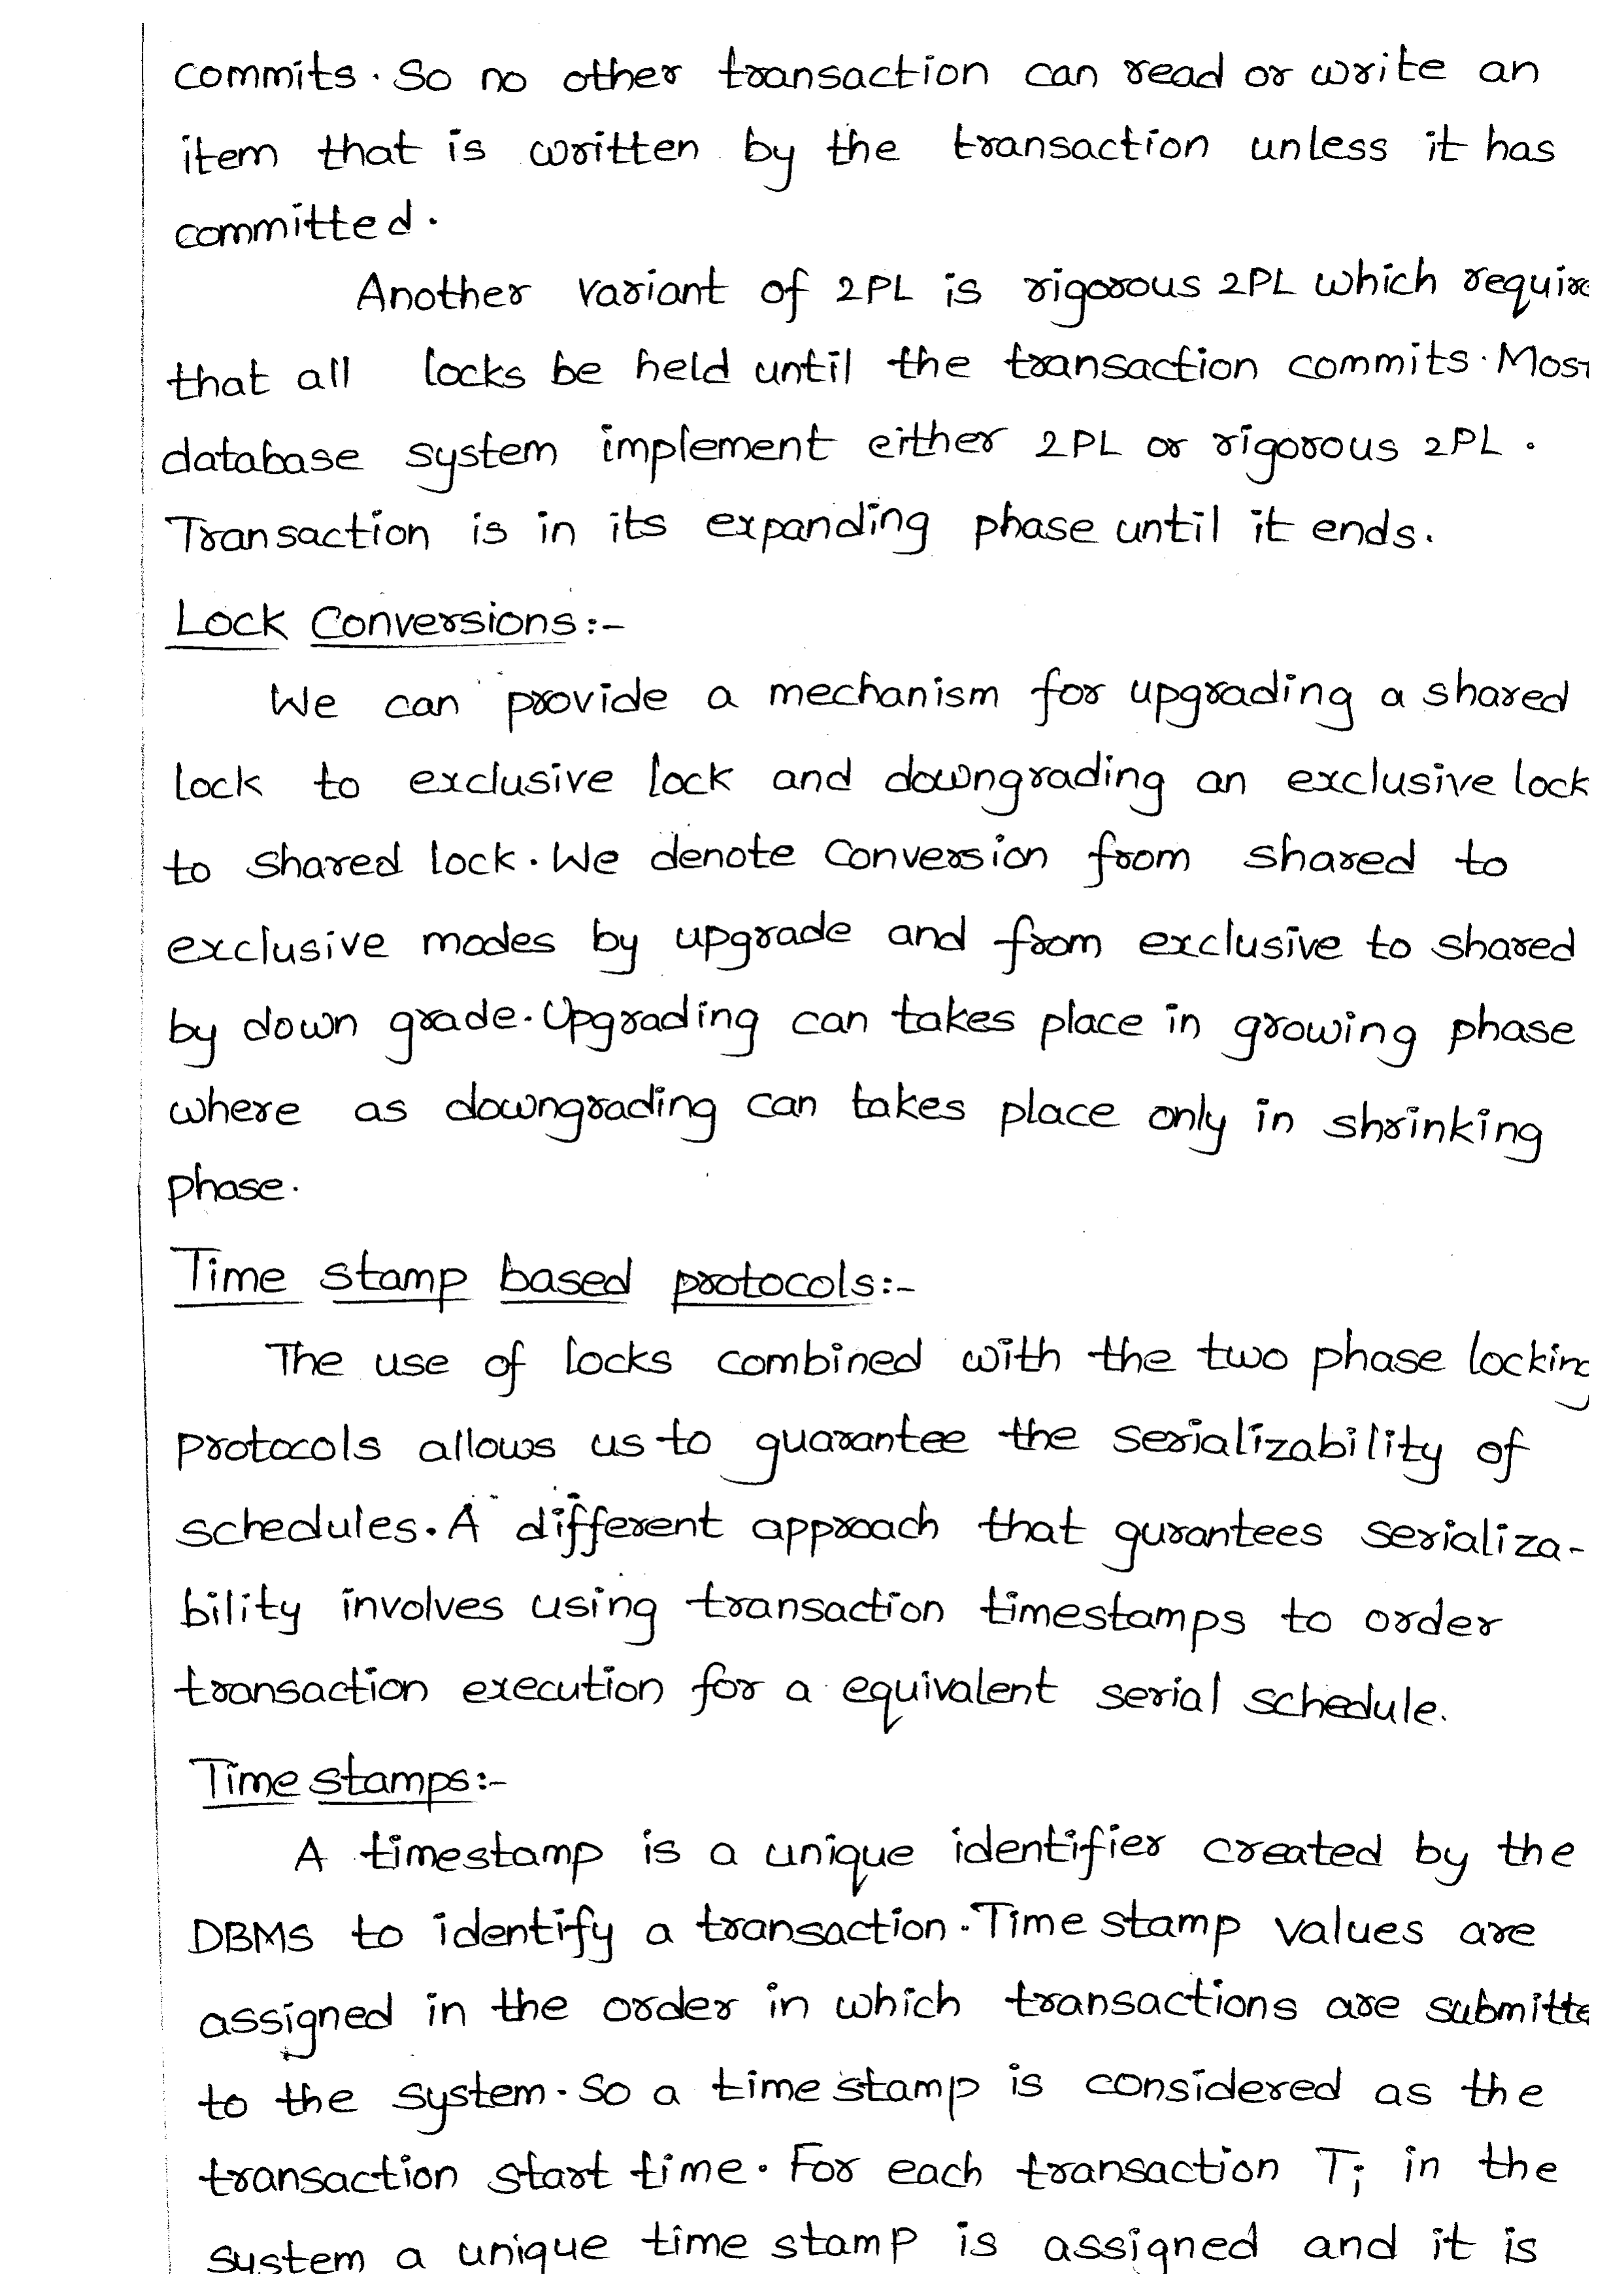 commits. So no other transaction can read or write an
item that is written by the transaction unless it has
committed.
Another variant of 2PL is rigorous 2PL which require
that all locks be held until the transaction commits. Most
database system implement either 2PL or rigorous 2PL.
Transaction is in its expanding phase until it ends.
Lock Conversions:-
We can provide a mechanism for upgrading a shared
lock to exclusive lock and downgrading an exclusive lock
to shared lock. We denote conversion from shared to
exclusive modes by upgrade and from exclusive to shared
by down grade. Upgrading can takes place in growing phase
where as downgrading can takes place only in shrinking
phase.
Time stamp based protocols:-
The use of locks combined with the two phase locking
protocols allows us to guarantee the serializability of
schedules. A different approach that gurantees serializa-
bility involves using transaction timestamps to order
transaction execution for a equivalent serial schedule.
Time stamps:-
A timestamp is a unique identifier created by the
DBMS to identify a transaction. Time stamp values are
assigned in the order in which transactions are submitte
to the system. So a time stamp is considered as the
transaction start time. For each transaction Ti in the
system a unique time stamp is assigned and it is